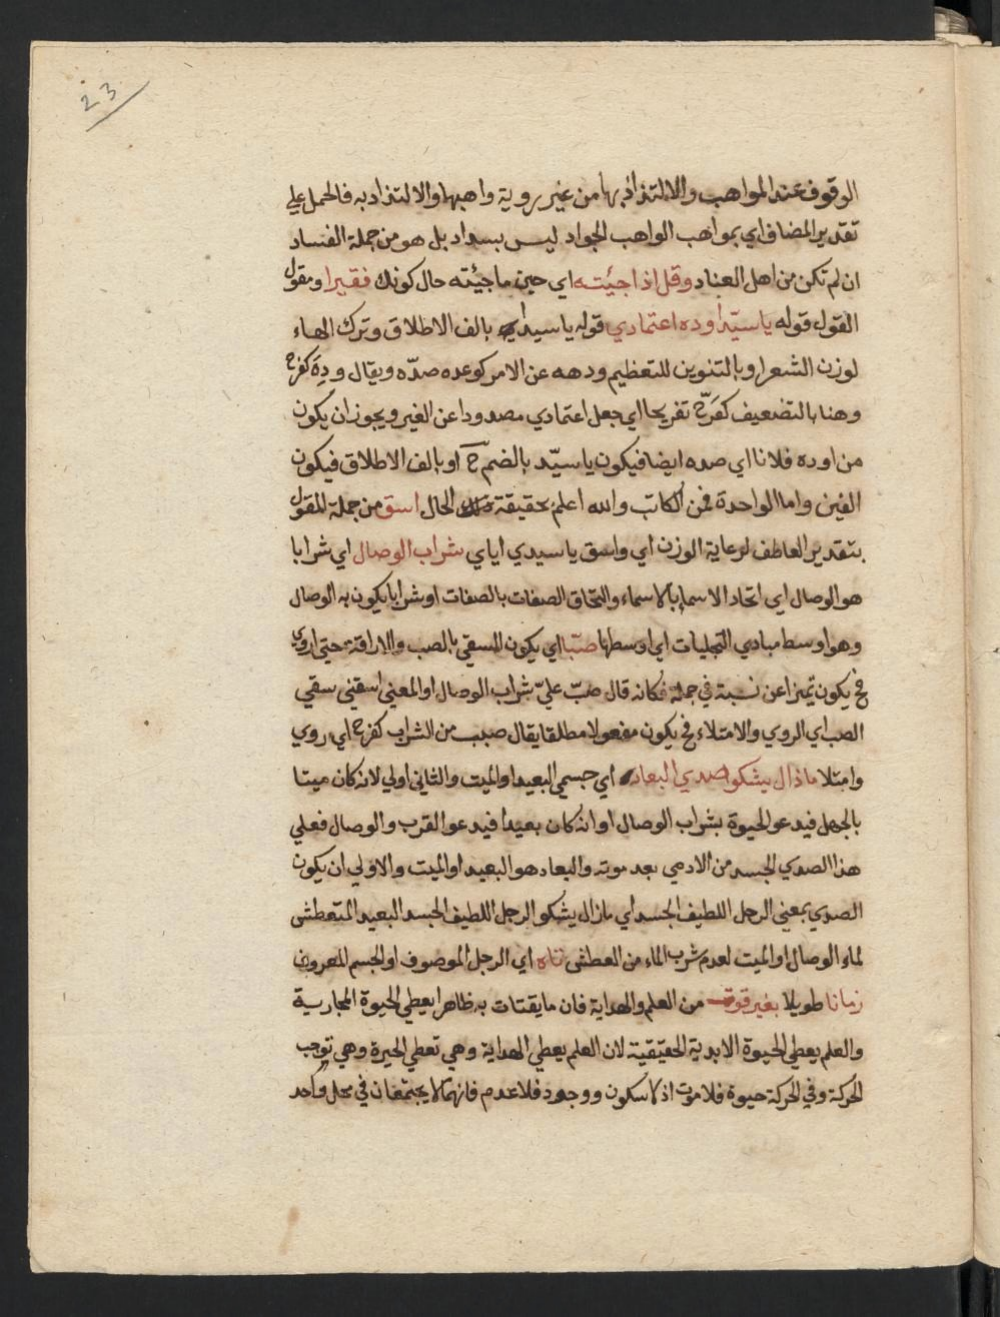 23
الوقوف عند المواهب والالتذاذ بها من غير روية واهبها والالتذاد به فالحمل على
تقدير المضاف اي بمواهب الواهب الجواد ليس بسداد بل هو من جملة الفساد
ان لم تكن من اهل العناد وقل اذا جيئته اي حين ما جيئته حال كونك فقيرا ومقول
القول قوله يا سيّدا وده اعتمادي قوله يا سيدا بالف الاطلاق وترك الهاء
لوزن الشعر او بالتنوين للتعظيم ودهه عن الامر كوعده صدّه ويقال ودِهَ كفرح
وهنا بالتضعيف كفَرّح تفريحا اي جعل اعتمادي مصدودا عن الغير ويجوز ان يكون
من اوده فلانا اي صده ايضا فيكون يا سيّد بالضم ح او بالف الاطلاق فيكون
الفين واما الواحدة فمن الكاتب والله اعلم بحقيقة الحال اسق من جملة المقول
بتقدير العاطف لرعاية الوزن اي واسق يا سيدي اياي شراب الوصال اي شرابا
هو الوصال اي اتحاد الاسماء بالاسماء والتحاق الصفات بالصفات او شرابا يكون به الوصال
وهو اوسط مبادي التجليات اي اوسطها صبّا اي يكون السقي بالصب والاراقة حتى اروي
فح يكون تميزا عن نسبة في جملة فكانه قال صبّ عليّ شراب الوصال او المعنى اسقني سقي
الصب اي الروي والامتلاء فح يكون مفعولا مطلقا يقال صبب من الشراب كفرح اي روي
وامتلا ماذال يشكو صدي البعاد اي جسمي البعيد او الميت والثاني اولي لانه كان ميتا
بالجهل فيدعو الحيوة بشراب الوصال او انه كان بعيدا فيدعو القرب والوصال فعلي
هذا الصدي الجسد من الادمي بعد موته والبعاد هو البعيد او الميت والاولي ان يكون
الصدي بمعني الرجل اللطيف الجسد اي مازال يشكو الرجل اللطيف الجسد البعيد المتعطش
لماء الوصال او الميت لعدم شرب الماء من العطش تاه اي الرجل الموصوف او الجسم المعروف
زمانا طويلا بغير قوت من العلم والهداية فان ما يقتات به ظاهرا يعطي الحيوة المجازية
والعلم يعطي الحيوة الابدية الحقيقية لان العلم يعطي الهداية وهي تعطي الحيرة وهي توجب
الحركة وفي الحركة حيوة فلا موت اذ لا سكون ووجود فلا عدم فانهما لا يجتمعان في محل واحد